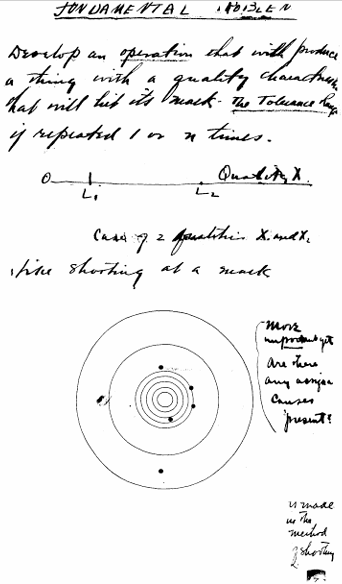 FUNDAMENTAL PROBLEM
Develop an operation that will produce
a thing with a quality characteristic
that will hit its mark - The Tolerance Range
if repeated 1 or n times.
O Quality X
L1 L2
Case of 2 qualities X1 and X2
like shooting at a mark
More
important yet
Are there
any
causes
present?
is made
in the
method
of shooting